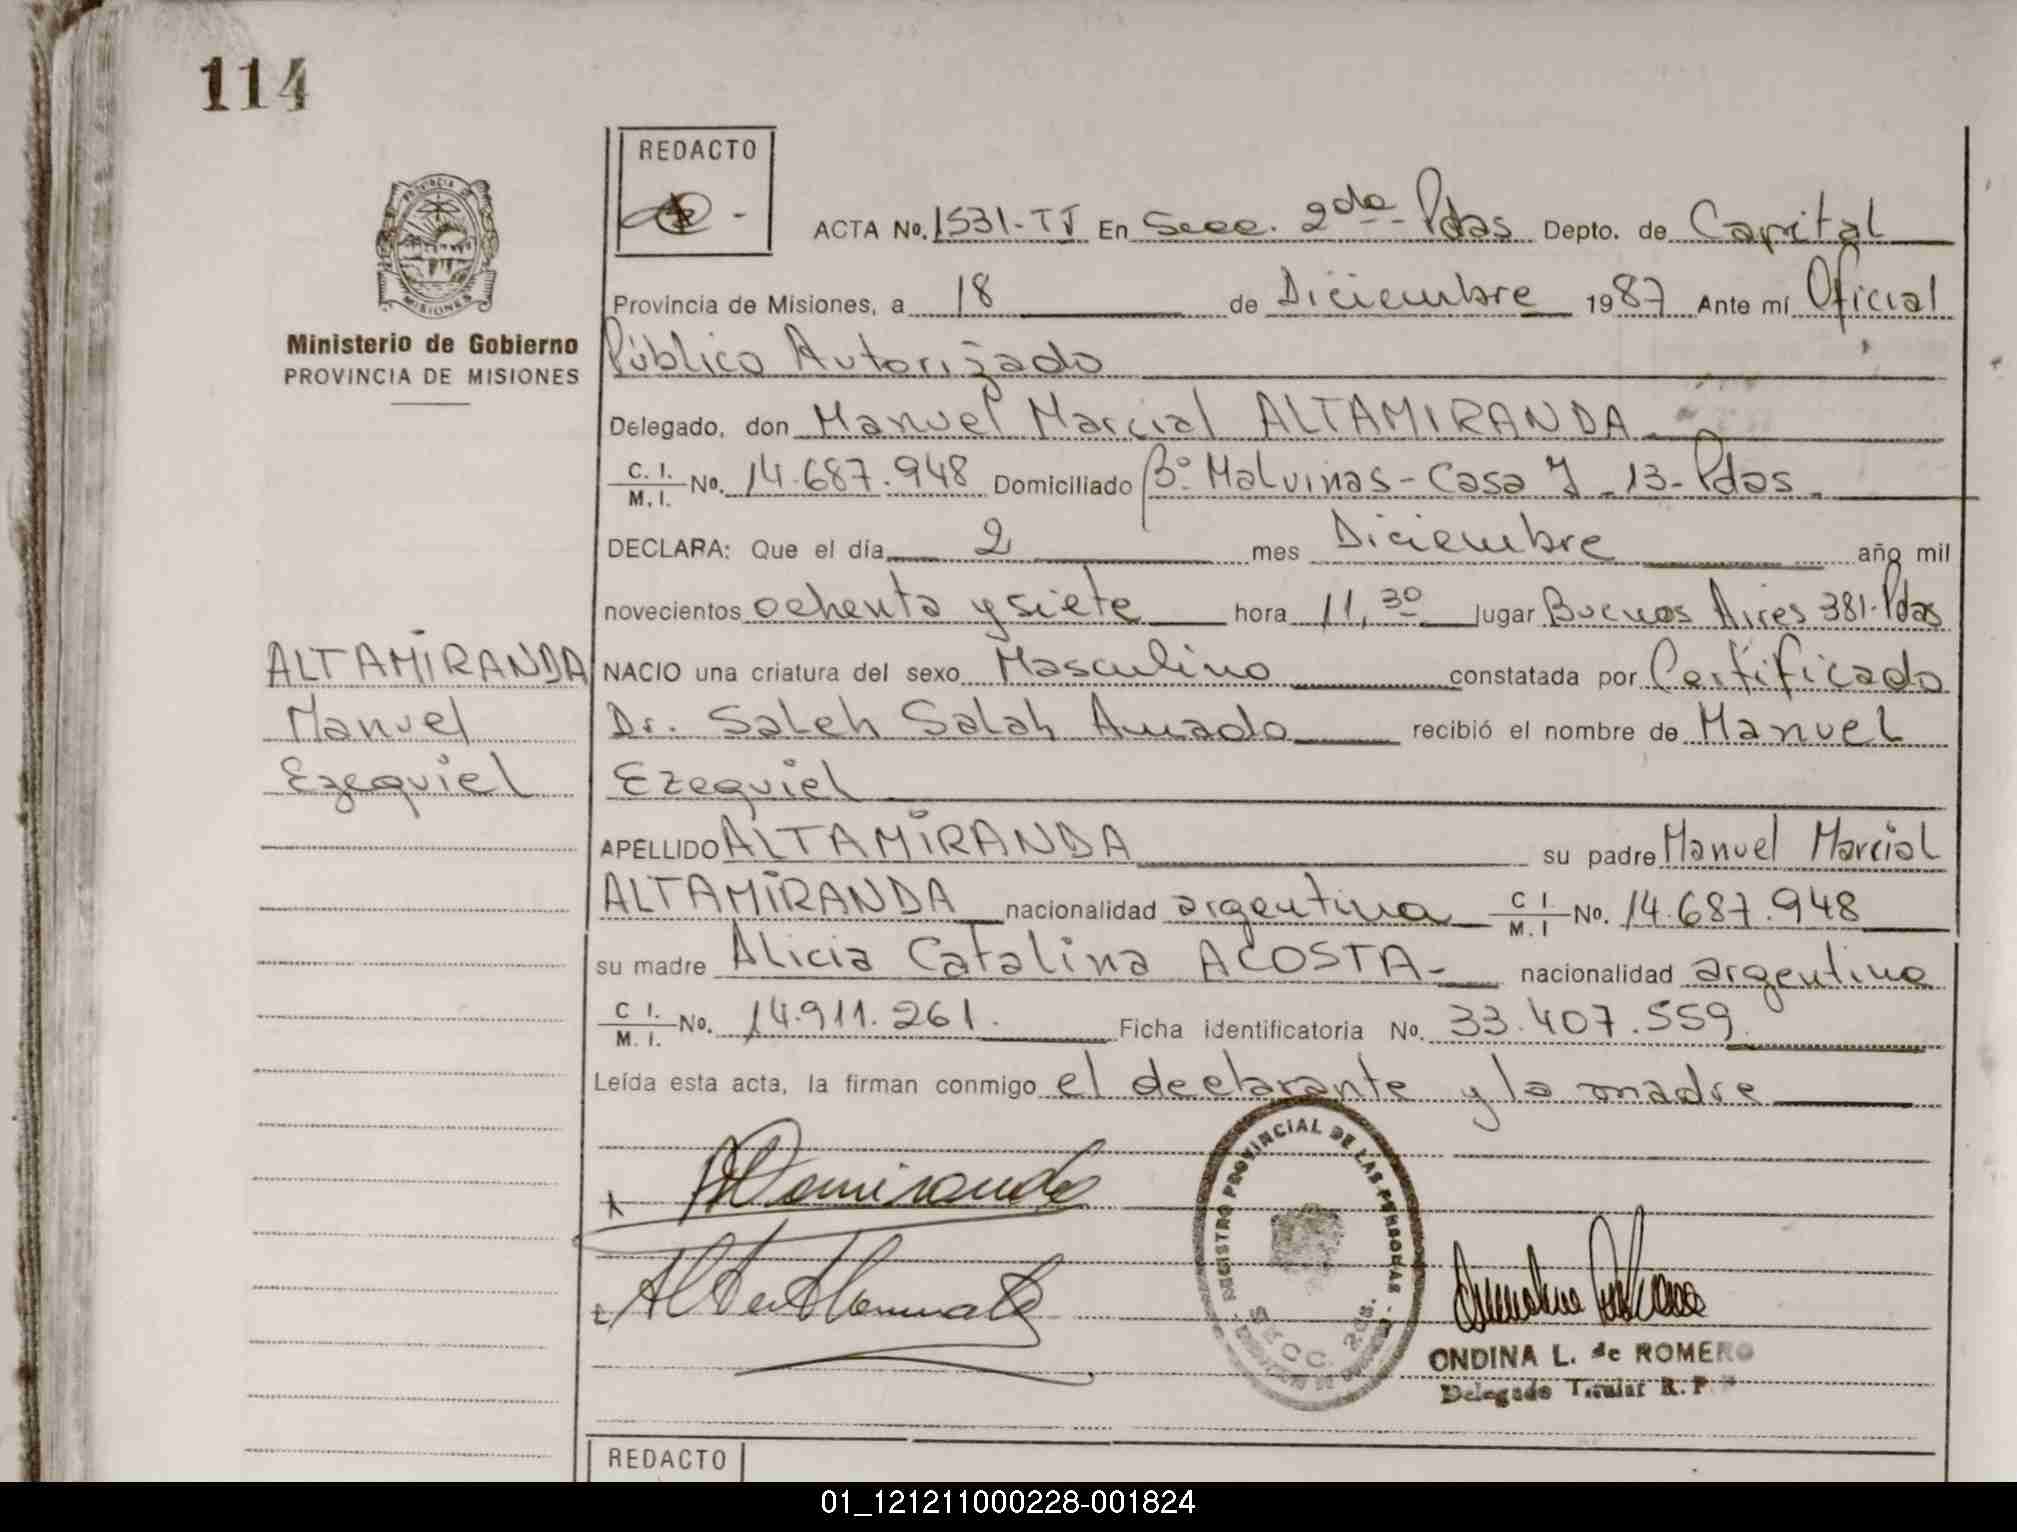 114
REDACTO
ACTA No. 1531-TJ En Secc. 2da- Pdas Depto. de Capital
PROVINCIA DE
MISIONES
Provincia de Misiones, a 18 de Diciembre 1987 Ante mí Oficial
Ministerio de Gobierno
PROVINCIA DE MISIONES
Público Autorizado
Delegado, don Manuel Marcial ALTAMIRANDA
C. I.
M. I. No. 14.687.948 Domiciliado Bº Malvinas - Casa J - 13 - Pdas.
DECLARA: Que el día 2 mes Diciembre año mil
novecientos ochenta y siete hora 11,30 lugar Buenos Aires 381-Pdas
ALTAMIRANDA
Manuel
Ezequiel
NACIO una criatura del sexo Masculino constatada por Certificado
Dr. Saleh Salah Amado recibió el nombre de Manuel
Ezequiel
APELLIDO ALTAMIRANDA su padre Manuel Marcial
ALTAMIRANDA nacionalidad argentina C I. M. I No. 14.687.948
su madre Alicia Catalina ACOSTA- nacionalidad argentina
C I. M. I. No. 14.911.261. Ficha identificatoria No. 33.407.559
Leída esta acta, la firman conmigo el declarante y la madre
REGISTRO PROVINCIAL DE LAS PERSONAS
SECC. 2da.
ONDINA L. de ROMERO
Delegado Titular R. P.
REDACTO
01_121211000228-001824